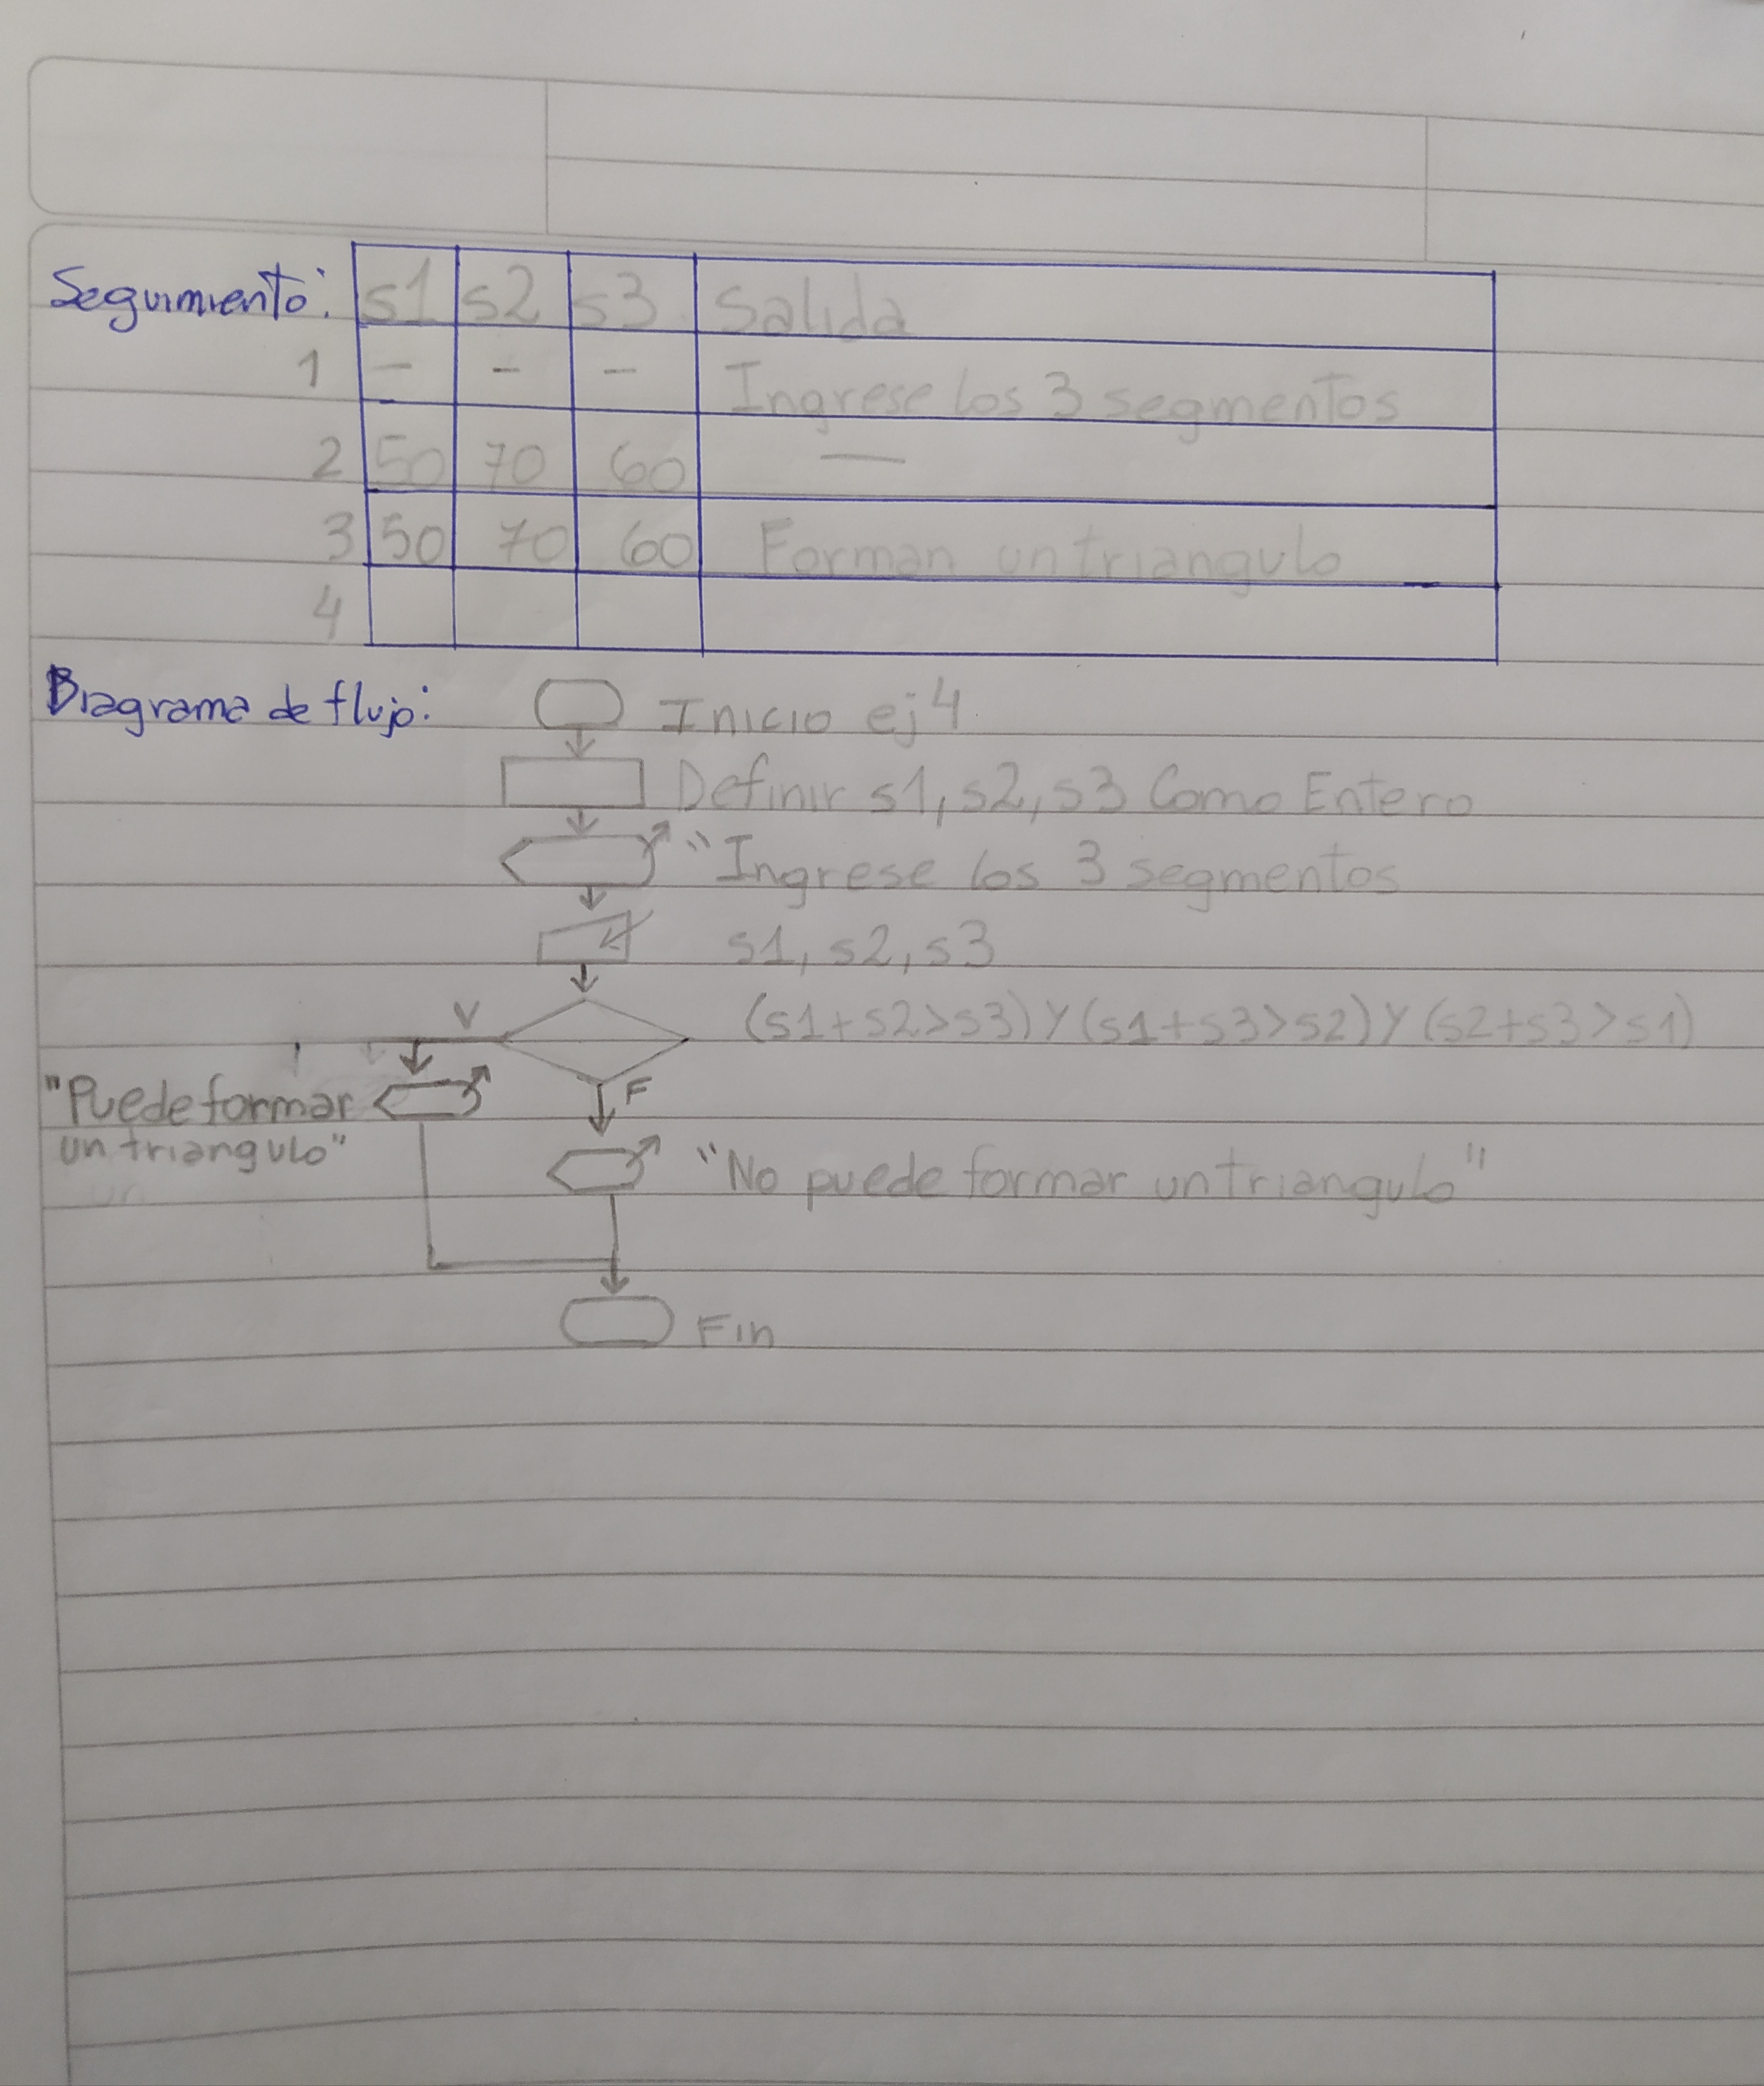 Seguimiento: s1 s2 s3 Salida
1 - - - Ingrese los 3 segmentos
2 50 70 60 —
3 50 70 60 Forman un triangulo
4
Diagrama de flujo: Inicio ej4
Definir s1, s2, s3 Como Entero
"Ingrese los 3 segmentos
s1, s2, s3
V (s1+s2>s3) Y (s1+s3>s2) Y (s2+s3>s1)
F
"Puede formar
un triangulo"
"No puede formar un triangulo"
Fin